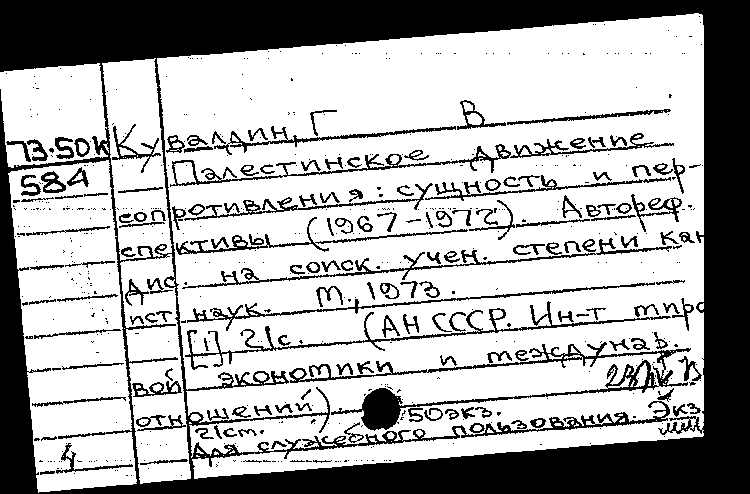 73-50к Кувалдин, Г В
584 Палестинское движение
сопротивления: сущность и пер-
спективы (1967-1972). Автореф.
дис. на соиск. учен. степени кан
ист. наук. М., 1973.
[1], 21с. (АН СССР. Ин-т миро
вой экономики и междунар.
отношений). 50экз.
21см.
Для служебного пользования. Экз.
4